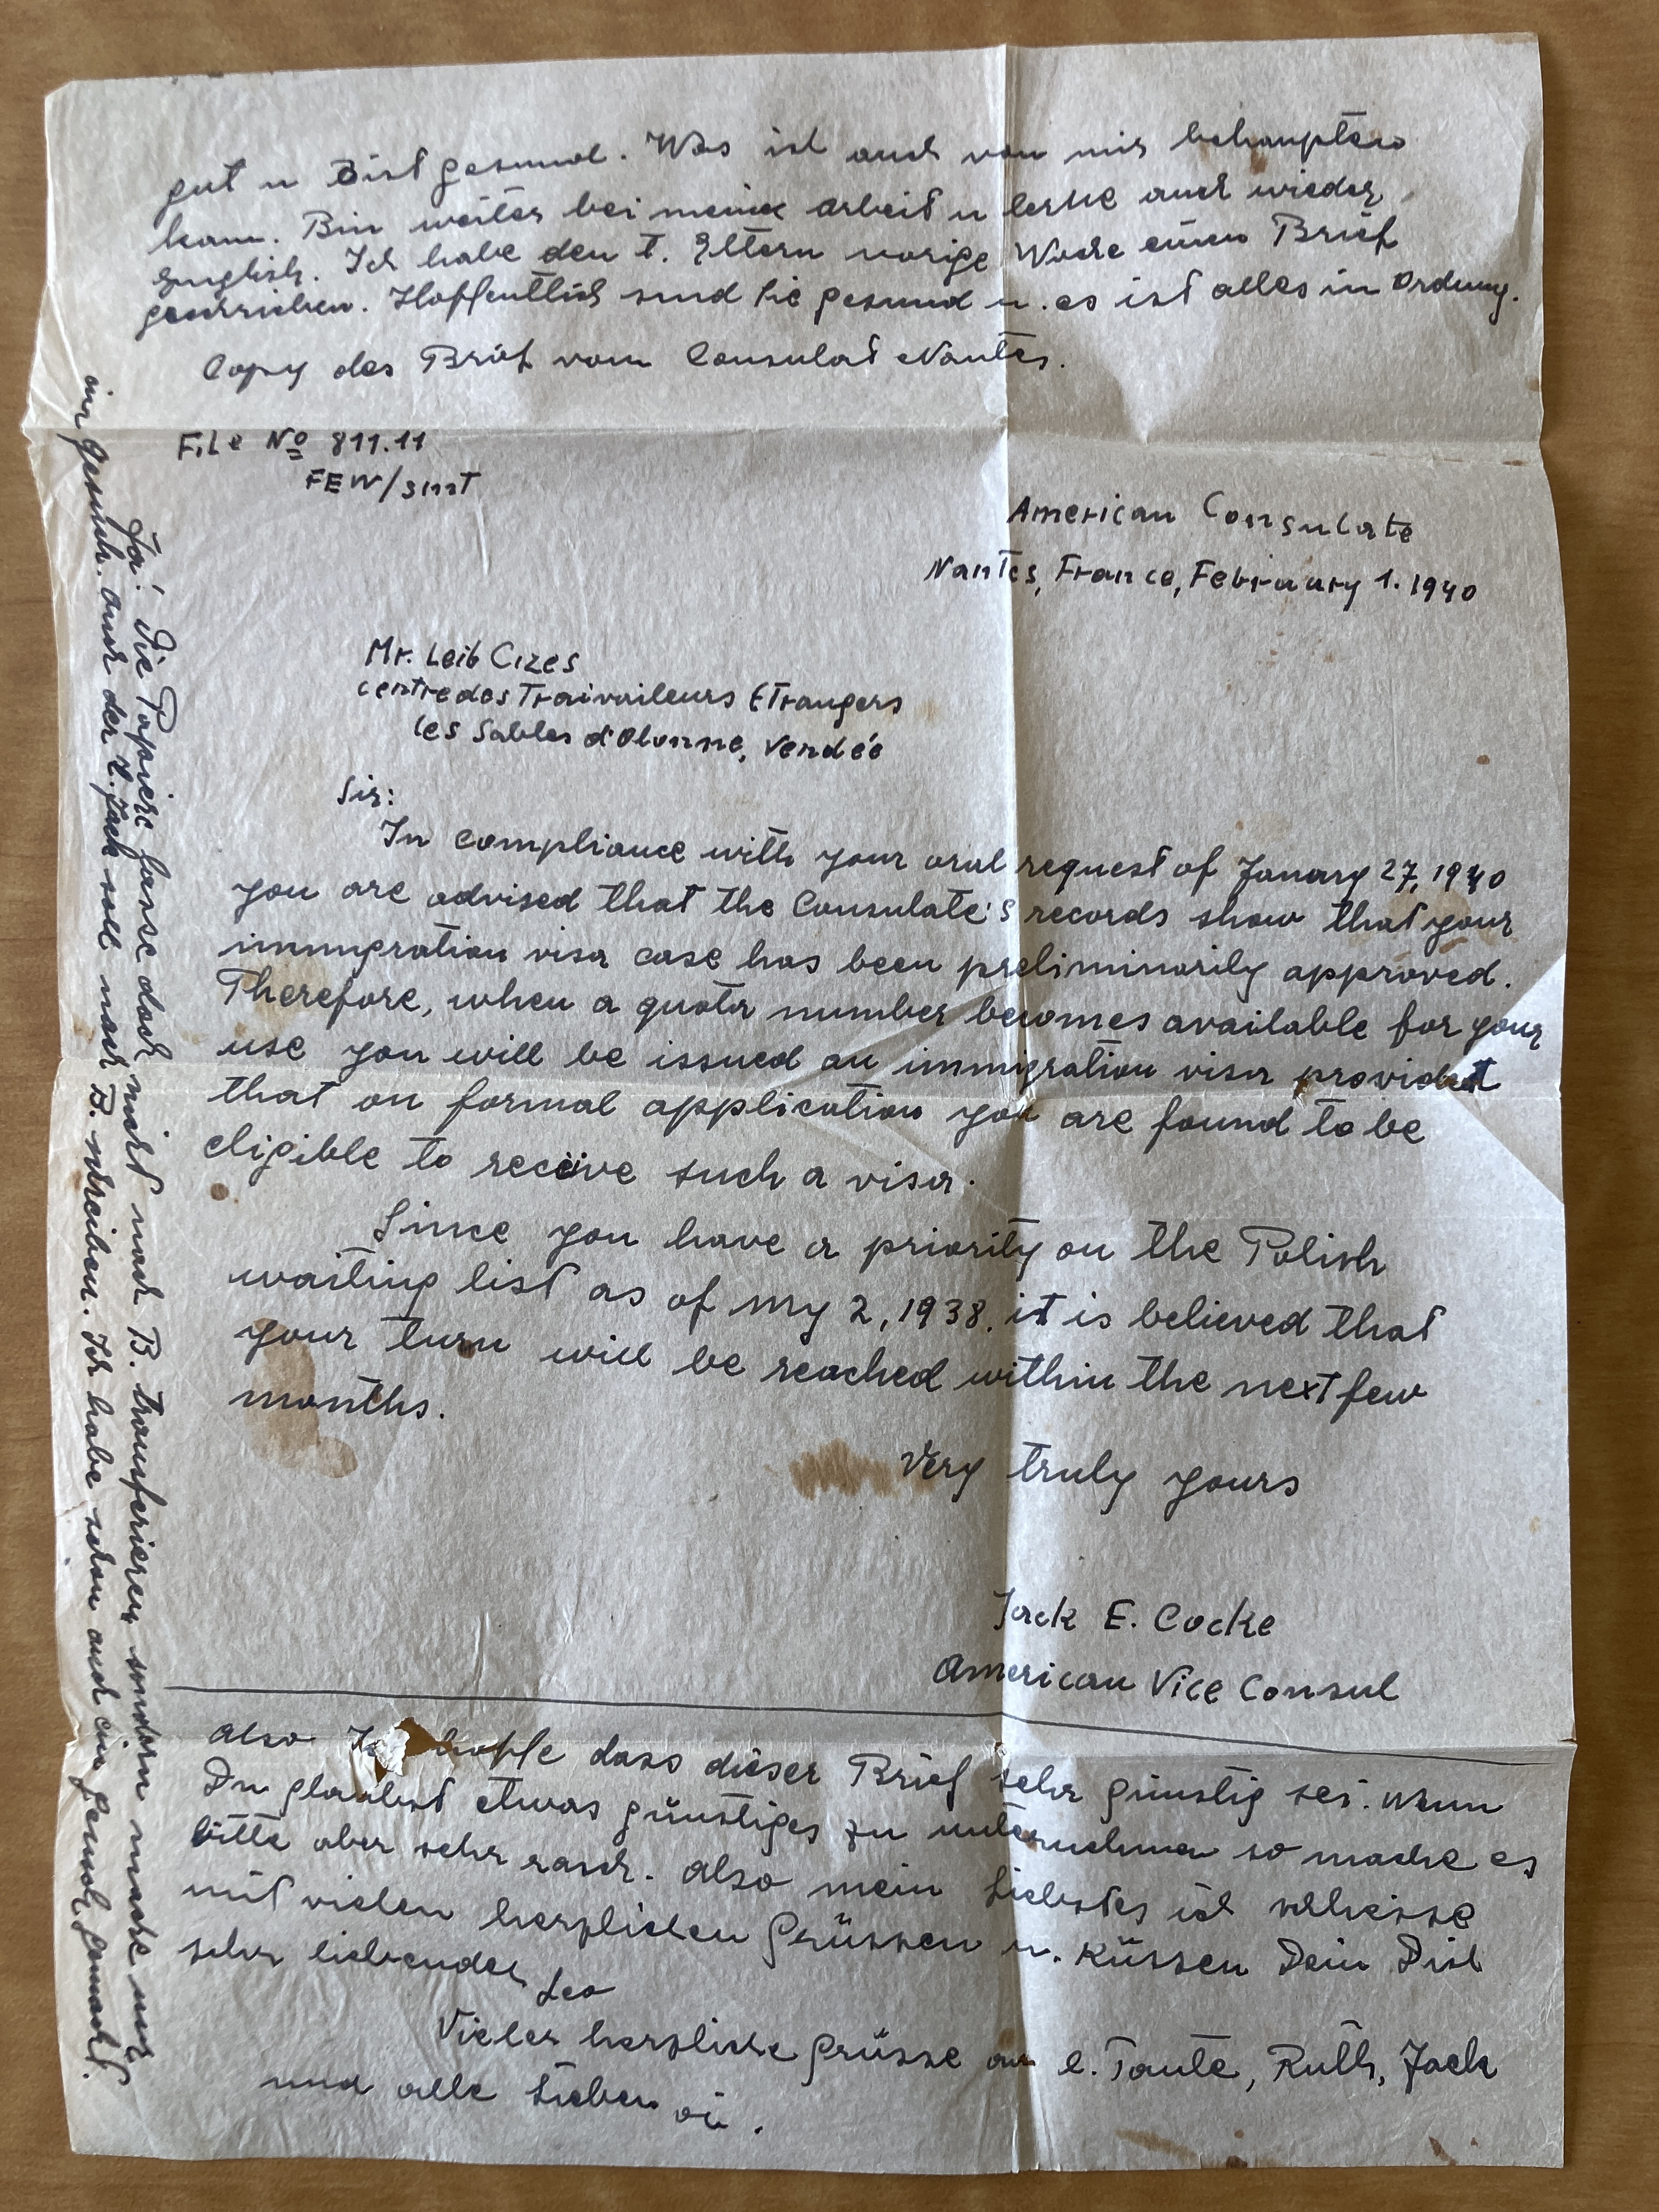 gut u Bist gesund. Was ich auch von mir behaupten
kann. Bin weiter bei meine arbeit u lerne auch wieder
English. Ich habe den l. Eltern vorige Woche einen Brief
geschrieben. Hoffentlich sind sie gesund u. es ist alles in Ordnung.
Copy des Brief vom Consulat Nantes.
File No 811.11
FEW/smt
American Consulate
Nantes, France, February 1. 1940
Mr. Leib Cizes
centre des Travailleurs Etrangers
les Sables d'Olonne, Vendée
Sir:
In compliance with your oral request of Janary 27, 1940
you are advised that the Consulate's records show that your
immigration visa case has been preliminarily approved.
Therefore, when a quota number becomes available for your
use you will be issued an immigration visa provided
that on formal application you are found to be
eligible to receive such a visa.
Since you have a priority on the Polish
waiting list as of My 2, 1938, it is believed that
your turn will be reached within the next few
months.
Very truly yours
Jack E. Cocke
American Vice Consul
also Ich hoffe dass dieser Brief sehr günstig sei. Wenn
Du glaubst etwas günstiges zu unternehmen so mache es
bitte aber sehr rasch. Also mein Liebstes ich schliesse
mit vielen herzlichen Grüssen u. Küssen Dein Dich
sehr liebender
Leo
Vieler herzliche Grüsse an l. Tante, Ruth, Jack
und alle Lieben
Ja! Die Papiere lasse doch nicht nach B. transferieren sondern mache nur
ein gesuch. auch der l. Jack soll nach B. schreiben. Ich habe schon auch ein Gesuch gemacht.